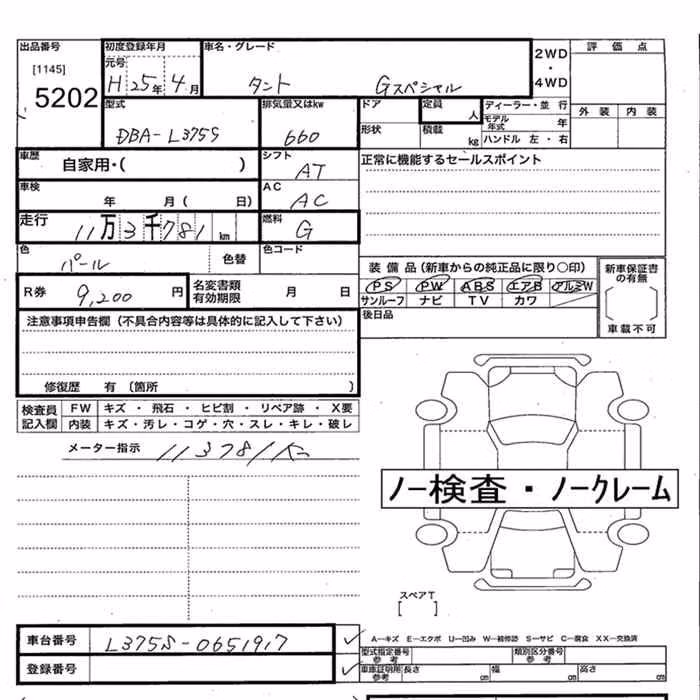 出品番号 初度登録年月 車名・グレード 2WD・4WD 評価点
[1145] 元号
5202 H25年4月 タント Gスペシャル
型式 排気量又はkw ドア 定員 人 ディーラー・並行 外装 内装
DBA-L375S 660 形状 積載 kg モデル年式 年
ハンドル 左・右
車歴 自家用・( ) シフト AT 正常に機能するセールスポイント
車検 年 月( 日) AC AC
走行 11万3千781km 燃料 G
色 パール 色替 色コード
装備品(新車からの純正品に限り○印) 新車保証書の有無
R券 9,200円 名変書類有効期限 月 日 PS PW ABS エアB アルミW
サンルーフ ナビ TV カワ
後日品 車載不可
注意事項申告欄(不具合内容等は具体的に記入して下さい)
修復歴 有(箇所 )
検査員記入欄 FW キズ・飛石・ヒビ割・リペア跡・X要
内装 キズ・汚レ・コゲ・穴・スレ・キレ・破レ
メーター指示 113781K
ノー検査・ノークレーム
スペアT
[ ]
車台番号 L375S-0651917
A−キズ E−エクボ U−凹み W−補修跡 S−サビ C−腐食 XX−交換済
登録番号
型式指定番号 参考 類別区分番号 参考
車庫証明用 参考 長さ cm 幅 cm 高さ cm